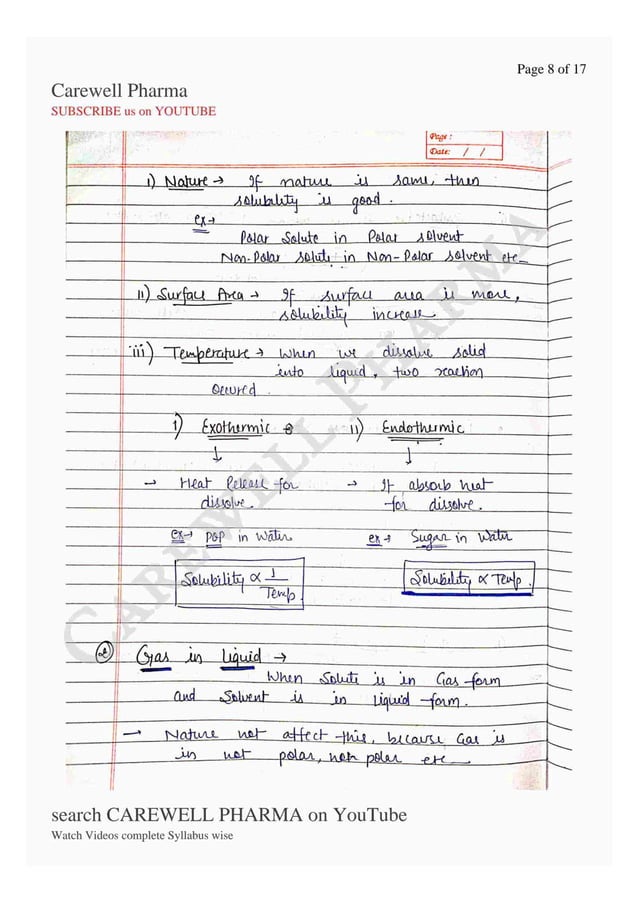 Page 8 of 17
Carewell Pharma
SUBSCRIBE us on YOUTUBE
Page :
Date: / /
i) Nature → If nature is same, then
solubility is good.
ex →
Polar Solute in Polar solvent
Non-Polar solute in Non-Polar solvent etc
ii) Surface Area → If surface area is more,
solubility increase
iii) Temperature → When we dissolve solid
into liquid, two reaction
occured.
i) Exothermic ii) Endothermic
↓ ↓
→ Heat Release for → It absorb heat
dissolve. for dissolve.
ex → POP in water ex → Sugar in water
Solubility ∝ 1/Temp. Solubility ∝ Temp.
② Gas in Liquid →
When Solute is in Gas form
and Solvent is in liquid form.
→ Nature not affect this, because Gas is
in not polar, non polar etc
CAREWELL PHARMA
search CAREWELL PHARMA on YouTube
Watch Videos complete Syllabus wise